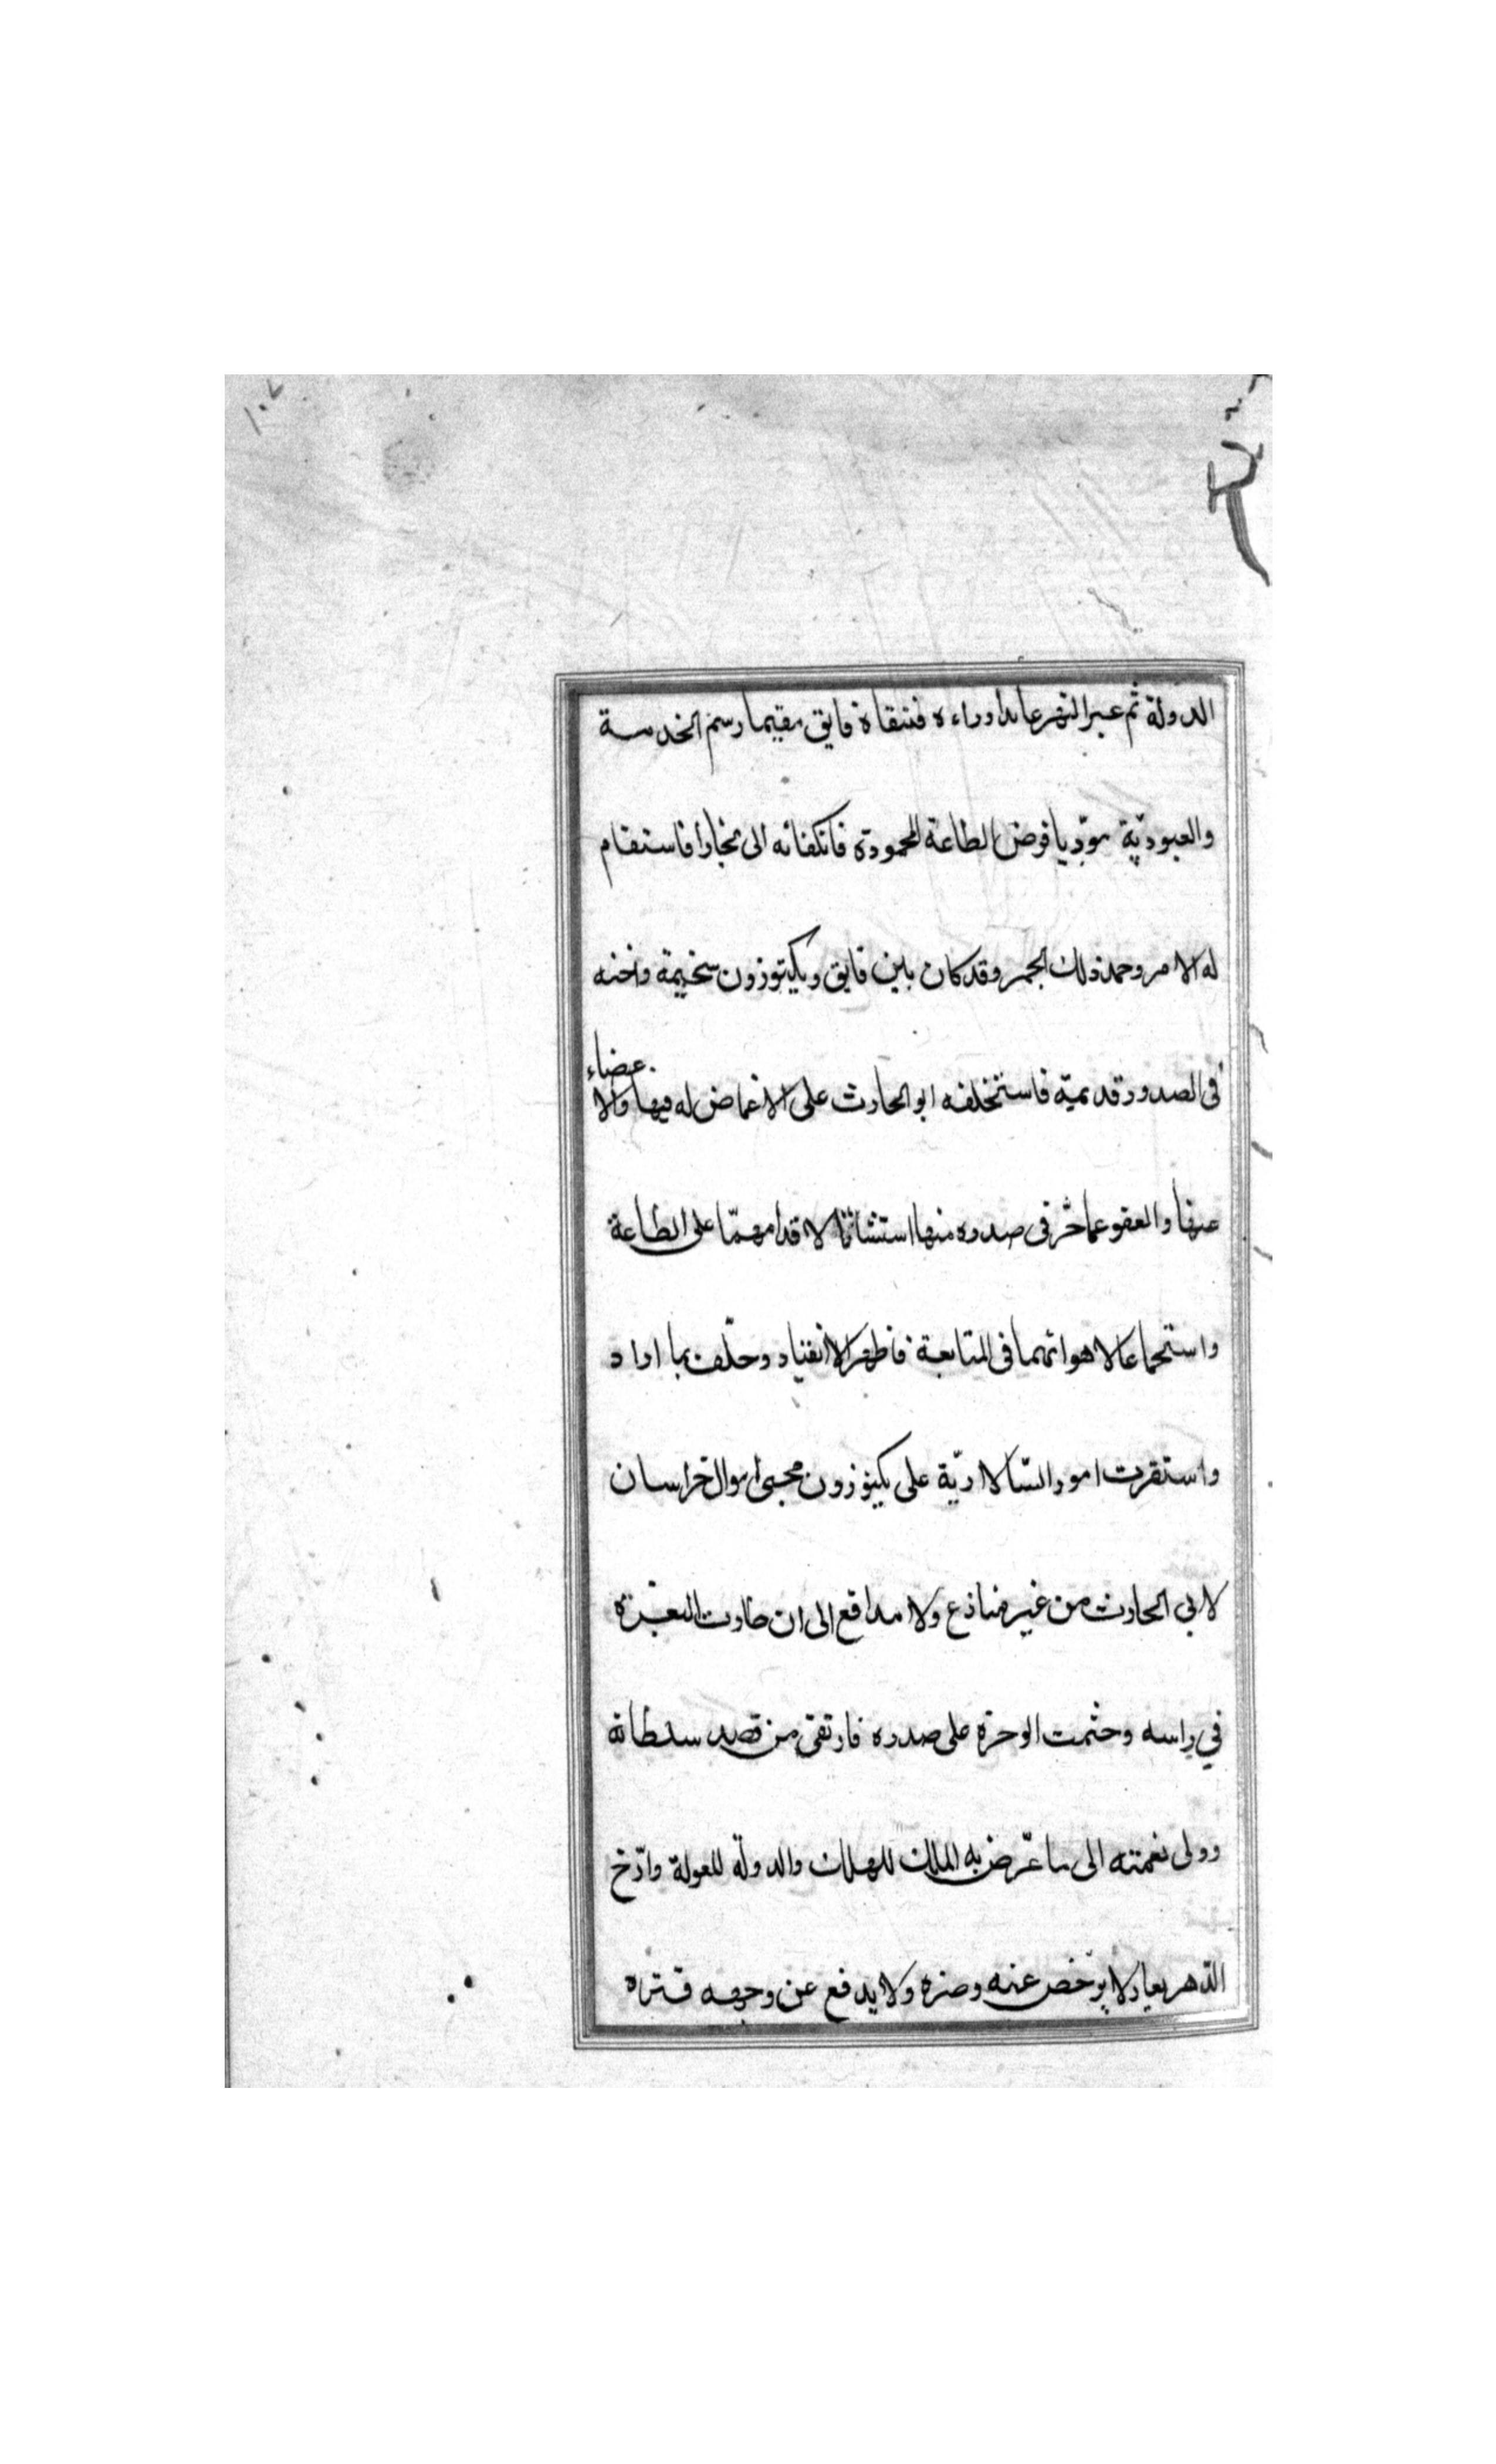 ١٠٧
الدولة ثم عبر النهر عايدا وراءه فتلقاه فايق مقيما رسم الخدمة
والعبوديّة مؤدّيا فرض الطاعة المحمودة فانكفائه الى بخارا فاستقام
له الامر وخمد ذلك الجمر وقد كان بين فايق وبكيتوزون سخيمة واحنه
فى الصدور قديمية فاستخلفه ابو الحارث على الاغماض له فيها والا
غضاء
عنها والعفو عما حزّ فى صدره منها استثباتا لاقدامهمّا على الطاعة
واستجماعا لاهوائهما فى المتابعة فاظهر الانقياد وحلّف بما اراد
واستقرت امور السّالاريّة على بكيتوزون مجبى اموال خراسان
لابي الحارث من غير منازع ولا مدافع الى ان طارت النعرة
في راسه وجثمت الوحرة على صدره فارتقى من قصد سلطانه
وولى نعمته الى ما عرّض به الملك للهلك والدولة للعولة وارّخ
الدّهر بعار لا يرخص عنه وضره ولا يدفع عن وجهه قتره